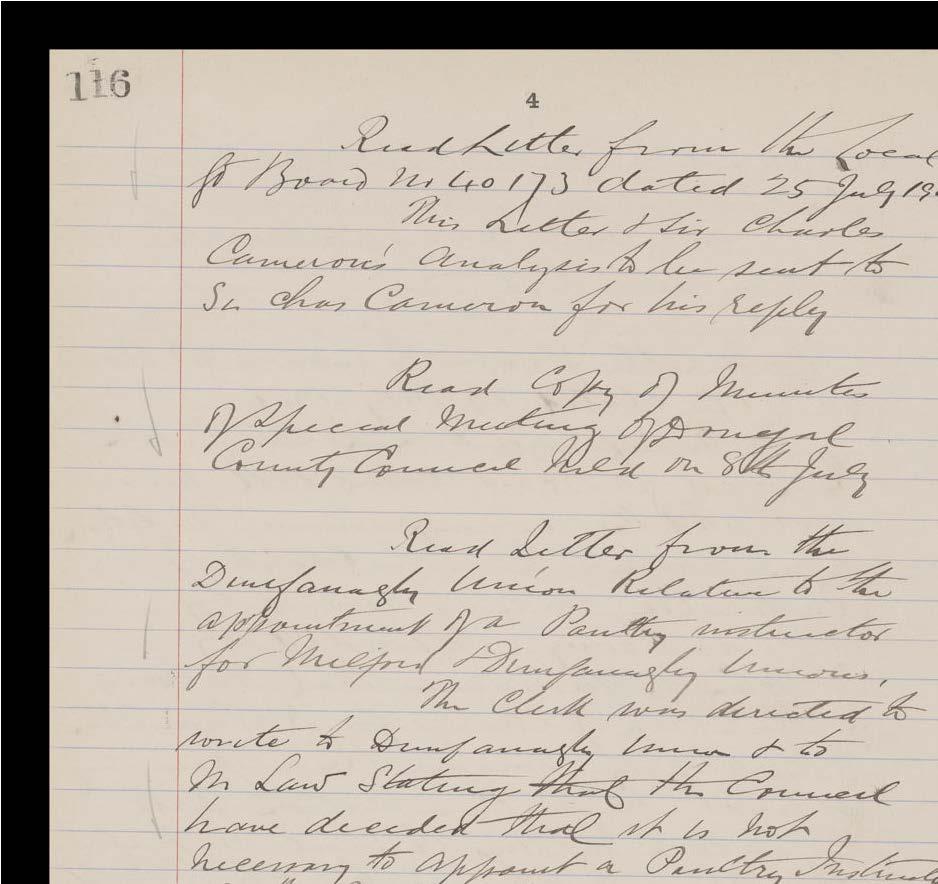 116
4
Read Letter from the Local
Gt Board No 40173 dated 25 July 19
This Letter & Sir Charles
Cameron's Analysis to be sent to
Sir Chas Cameron for his reply
Read Copy of Minutes
of Special Meeting of Donegal
County Council held on 8th July
Read Letter from the
Dunfanaghy Union Relative to the
appointment of a Poultry instructor
for Milford & Dunfanaghy Unions.
The Clerk was directed to
write to Dunfanaghy Union & to
Mr Law Stating that the Council
have decided that it is not
necessary to appoint a Poultry